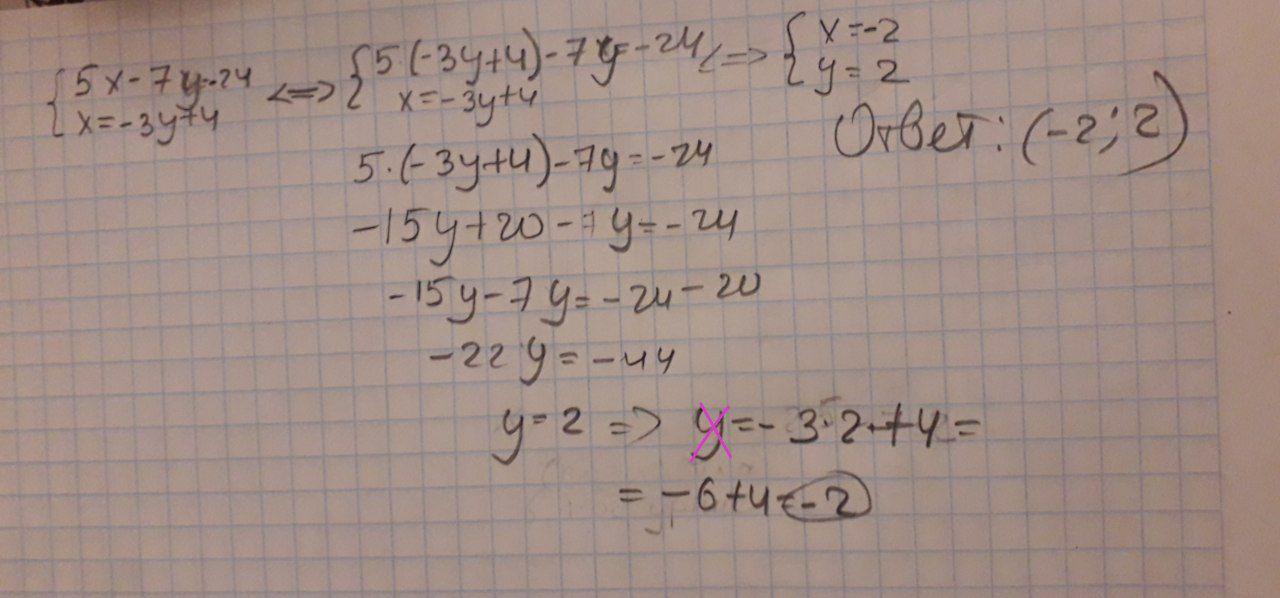 {5x-7y=-24 <=> {5·(-3y+4)-7y=-24 <=> {x=-2
x=-3y+4 x=-3y+4 y=2
Ответ: (-2; 2)
5·(-3y+4)-7y=-24
-15y+20-7y=-24
-15y-7y=-24-20
-22y=-44
y=2 => x=-3·2+4=
=-6+4=-2